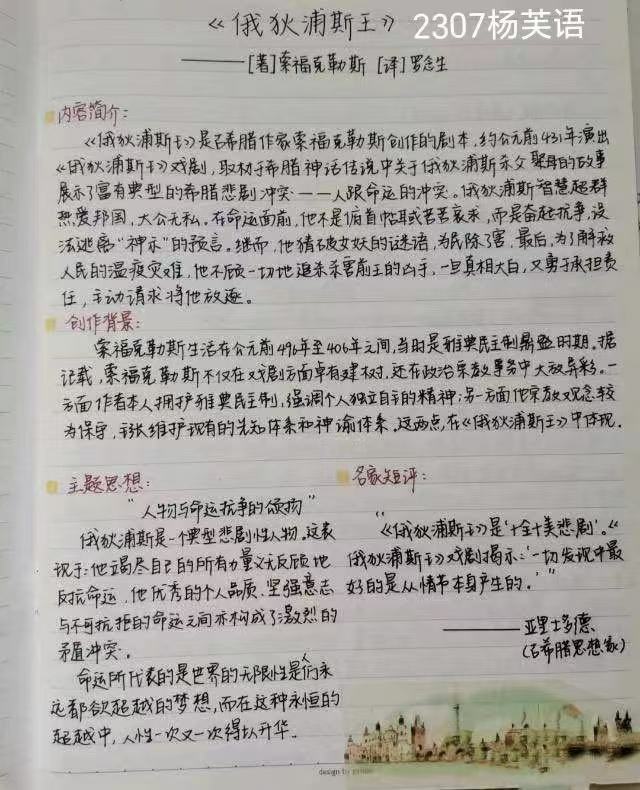 《俄狄浦斯王》 2307杨芙语
——[著]索福克勒斯 [译]罗念生
内容简介:
《俄狄浦斯王》是古希腊作家索福克勒斯创作的剧本,约公元前431年演出
《俄狄浦斯王》戏剧,取材于希腊神话传说中关于俄狄浦斯杀父娶母的故事
展示了富有典型的希腊悲剧冲突——人跟命运的冲突。俄狄浦斯智慧超群
热爱邦国,大公无私。在命运面前,他不是俯首帖耳或苦苦哀求,而是奋起抗争,设
法逃离“神示”的预言。继而,他猜破女妖的谜语,为民除了害。最后,为了解救
人民的温疫灾难,他不顾一切地追杀杀害前王的凶手,一旦真相大白,又勇于承担责
任,主动请求将他放逐。
创作背景:
索福克勒斯生活在公元前496年至406年之间,当时是雅典民主制鼎盛时期。据
记载,索福克勒斯不仅在戏剧方面卓有建树,还在政治宗教事务中大放异彩。一
方面作者本人拥护雅典民主制,强调个人独立自主的精神;另一方面他宗教观念较
为保守,主张维护现有的先知体系和神谕体系。这两点,在《俄狄浦斯王》中体现.
主题思想:
“人物与命运抗争的颂扬”
俄狄浦斯是一个典型悲剧性人物。这表
现于:他竭尽自己的所有力量义无反顾地
反抗命运,他优秀的个人品质、坚强意志
与不可抗拒的命运之间亦构成了激烈的
矛盾冲突。
命运所代表的是世界的无限性是们永
远都欲超越的梦想,而在这种永恒的
超越中,人性一次又一次得以升华.
名家短评:
《俄狄浦斯王》是‘十全十美悲剧’。《
俄狄浦斯王》戏剧揭示:‘一切发现中最
好的是从情节本身产生的.’”
——亚里士多德
(古希腊思想家)
design by